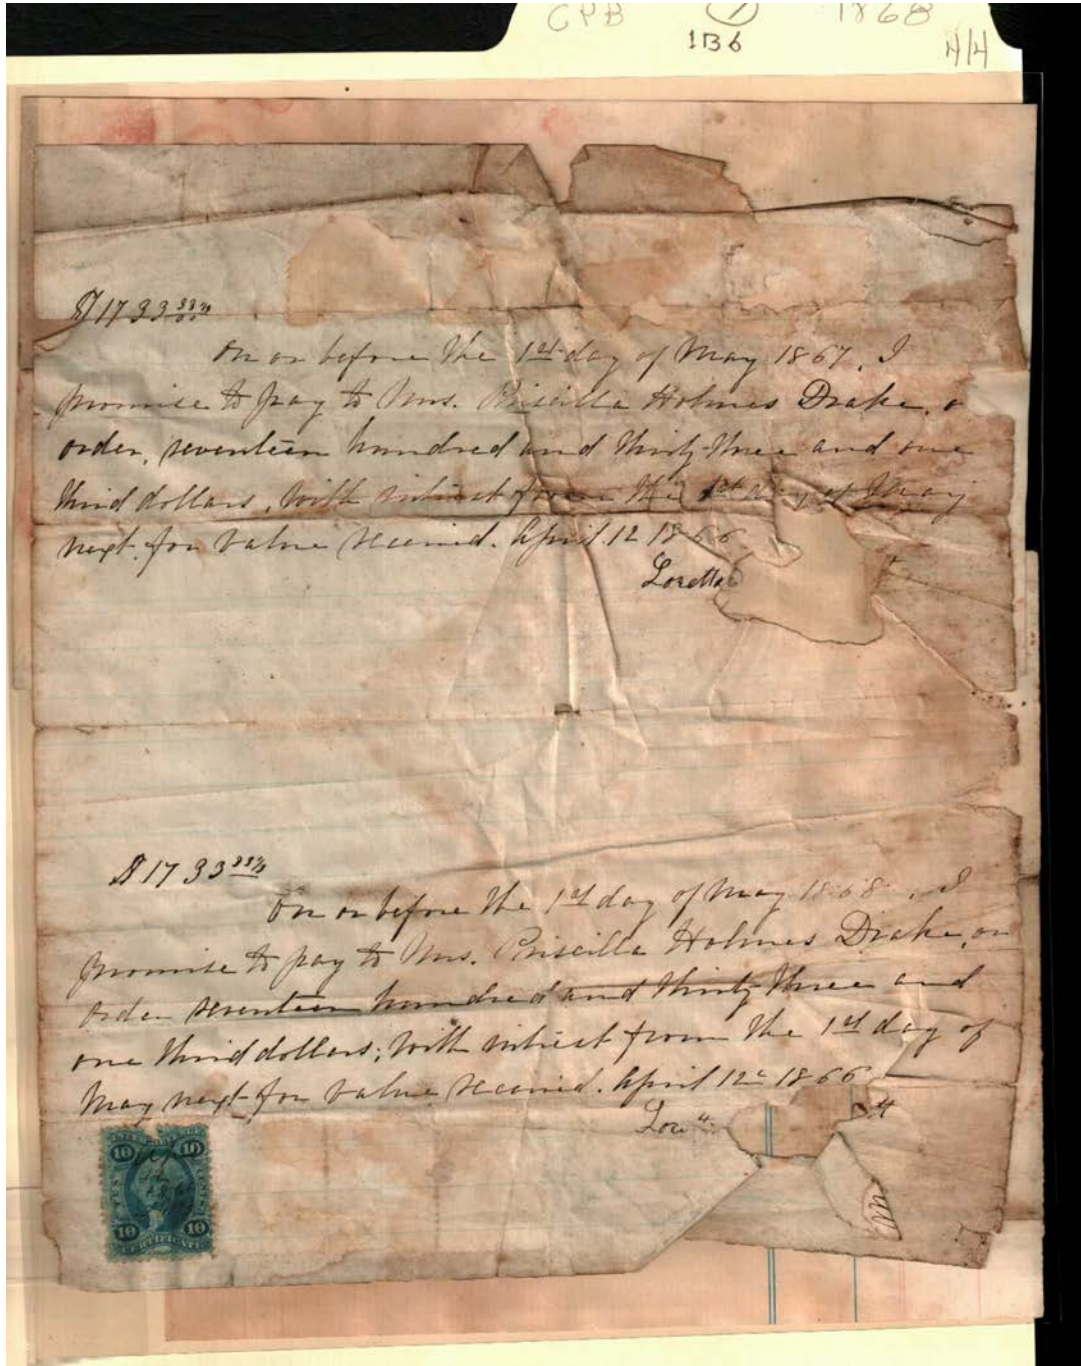 CPB 1 1868
1B6 H/4
$1733 33⅓/00
On or before the 1st day of May 1867, I
promise to pay to Mrs. Priscilla Holmes Drake, o
order, seventeen hundred and thirty-three and one
third dollars, with interest from the 1st day of May
next, for value received. April 12 1866
Loretta
$1733 33⅓
On or before the 1st day of May 1868, I
promise to pay to Mrs. Priscilla Holmes Drake, or
order seventeen hundred and thirty three and
one third dollars; with interest from the 1st day of
May next for value received. April 12 1866
10 10
10 10
CERTIFICATE